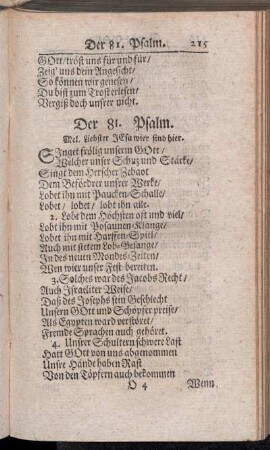 Der 81. Psalm. 215
GOtt/ tröst uns für und für/
Zeig' uns dein Angesicht/
So können wir genesen/
Du bist zum Trost erlesen/
Vergiß doch unsrer nicht.
Der 81. Psalm.
Mel. Liebster JEsu wier sind hier.
SInget frölig unserm GOtt/
Welcher unser Schuz und Stärke/
Singt dem Herscher Zebaot
Dem Befördrer unsrer Werke/
Lobet ihn mit Paucken-Schalle/
Lobet/ lobet/ lobt ihn alle.
2. Lobt dem Höchsten oft und viel/
Lobt ihn mit Posaunen-Klange/
Lobet ihn mit Harffen-Spiel/
Auch mit stetem Lob-Gesange/
In des neuen Mondes-Zeiten/
Wen wier unser Fest bereiten.
3. Solches war des Jacobs Recht/
Auch Israeliter Weise/
Daß des Josephs sein Geschlecht
Unsern GOtt und Schöpfer preise/
Als Egypten ward verstöret/
Fremde Sprachen auch gehöret.
4. Unsrer Schultern schwere Last
Hatt GOtt von uns abgenommen
Unsre Hände haben Rast
Von den Töpfern auch bekommen
O 4 Wenn